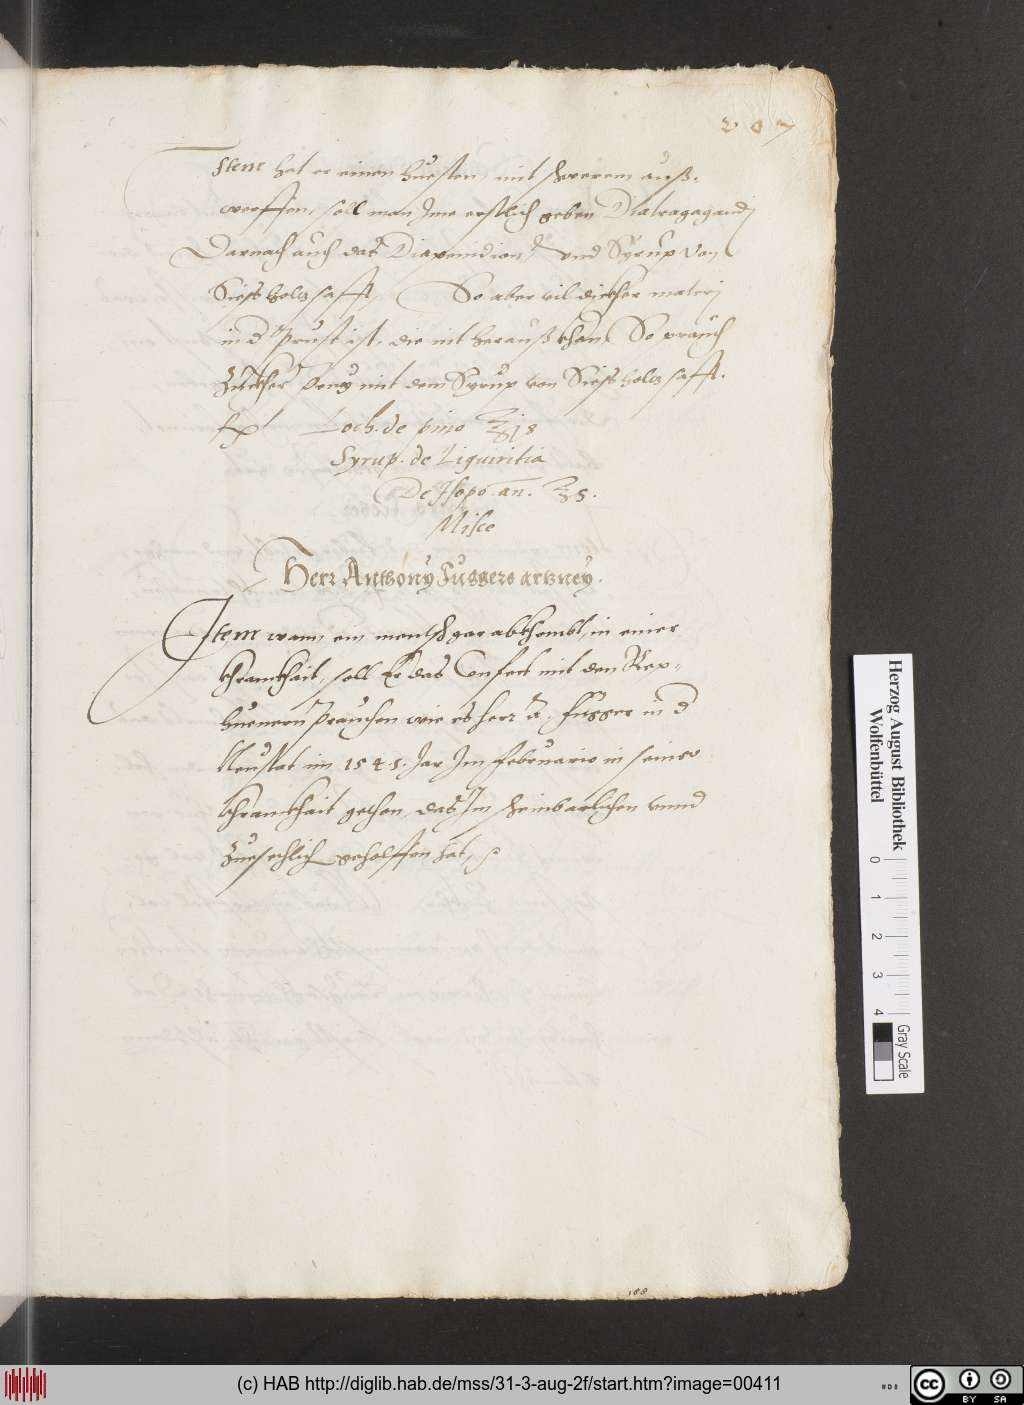 207
Item hat er einen Huesten, mit schwerem auß-
werffen, soll man Ime erstlich geben Diatragagandj
Darnach auch das Diapenidion, vnd Syrup von
Siesholtz safft, So aber vil dickher materj
in d Prust ist, die nit heraus khan, So prauch
Zuckher Peny mit dem Syrup von Siesholtz safft.
Rp Loch. de pino ℥j
Syrup. de Liquiritia
De Isopo an. ℥
Misce
Herr Anthony Fuggers artzney.
Item wann ein mensch gar abkhombt, in einer
khranckhait, soll Er das Confect mit den Rep-
huenern Prauchen wie es herr A. Fugger in d
Neustat im 1545. Jar Im Februario in seiner
khranckhait gethon, das Im scheinbarlichen vnnd
Zuesechlich geholffen hat,
188
Herzog August Bibliothek
Wolfenbüttel
0 1 2 3 4
Gray Scale
(c) HAB http://diglib.hab.de/mss/31-3-aug-2f/start.htm?image=00411
cc BY SA